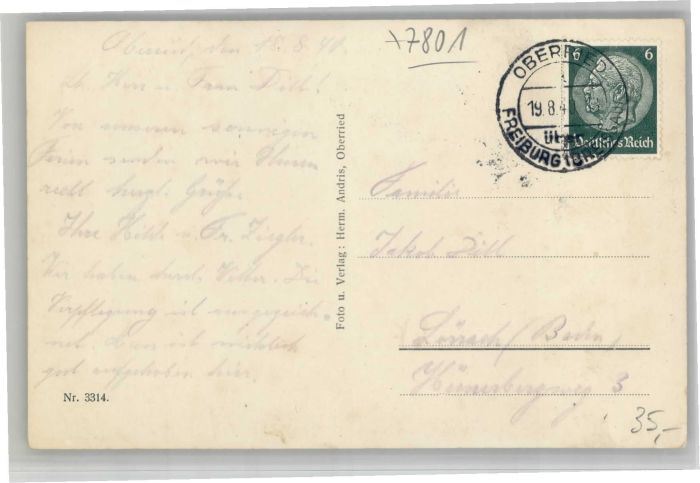 +7801
Oberried, den 18.8.41.
Lb. Herr u. Frau Dill!
Von unseren sonnigen
Ferien senden wir Ihnen
recht herzl. Grüße.
Ihre Hilde u. Fr. Ziegler.
Wir haben durchw. Die
Verpflegung ist ausgezeich-
net. Man ist wirklich
gut aufgehoben hier.
Nr. 3314.
Foto u. Verlag: Herm. Andris, Oberried
OBERRIED
19.8.4
über
FREIBURG
6 6
Deutsches Reich
Familie
Jakob Dill
Lörrach/Baden
Hünerbergweg 3
35,-